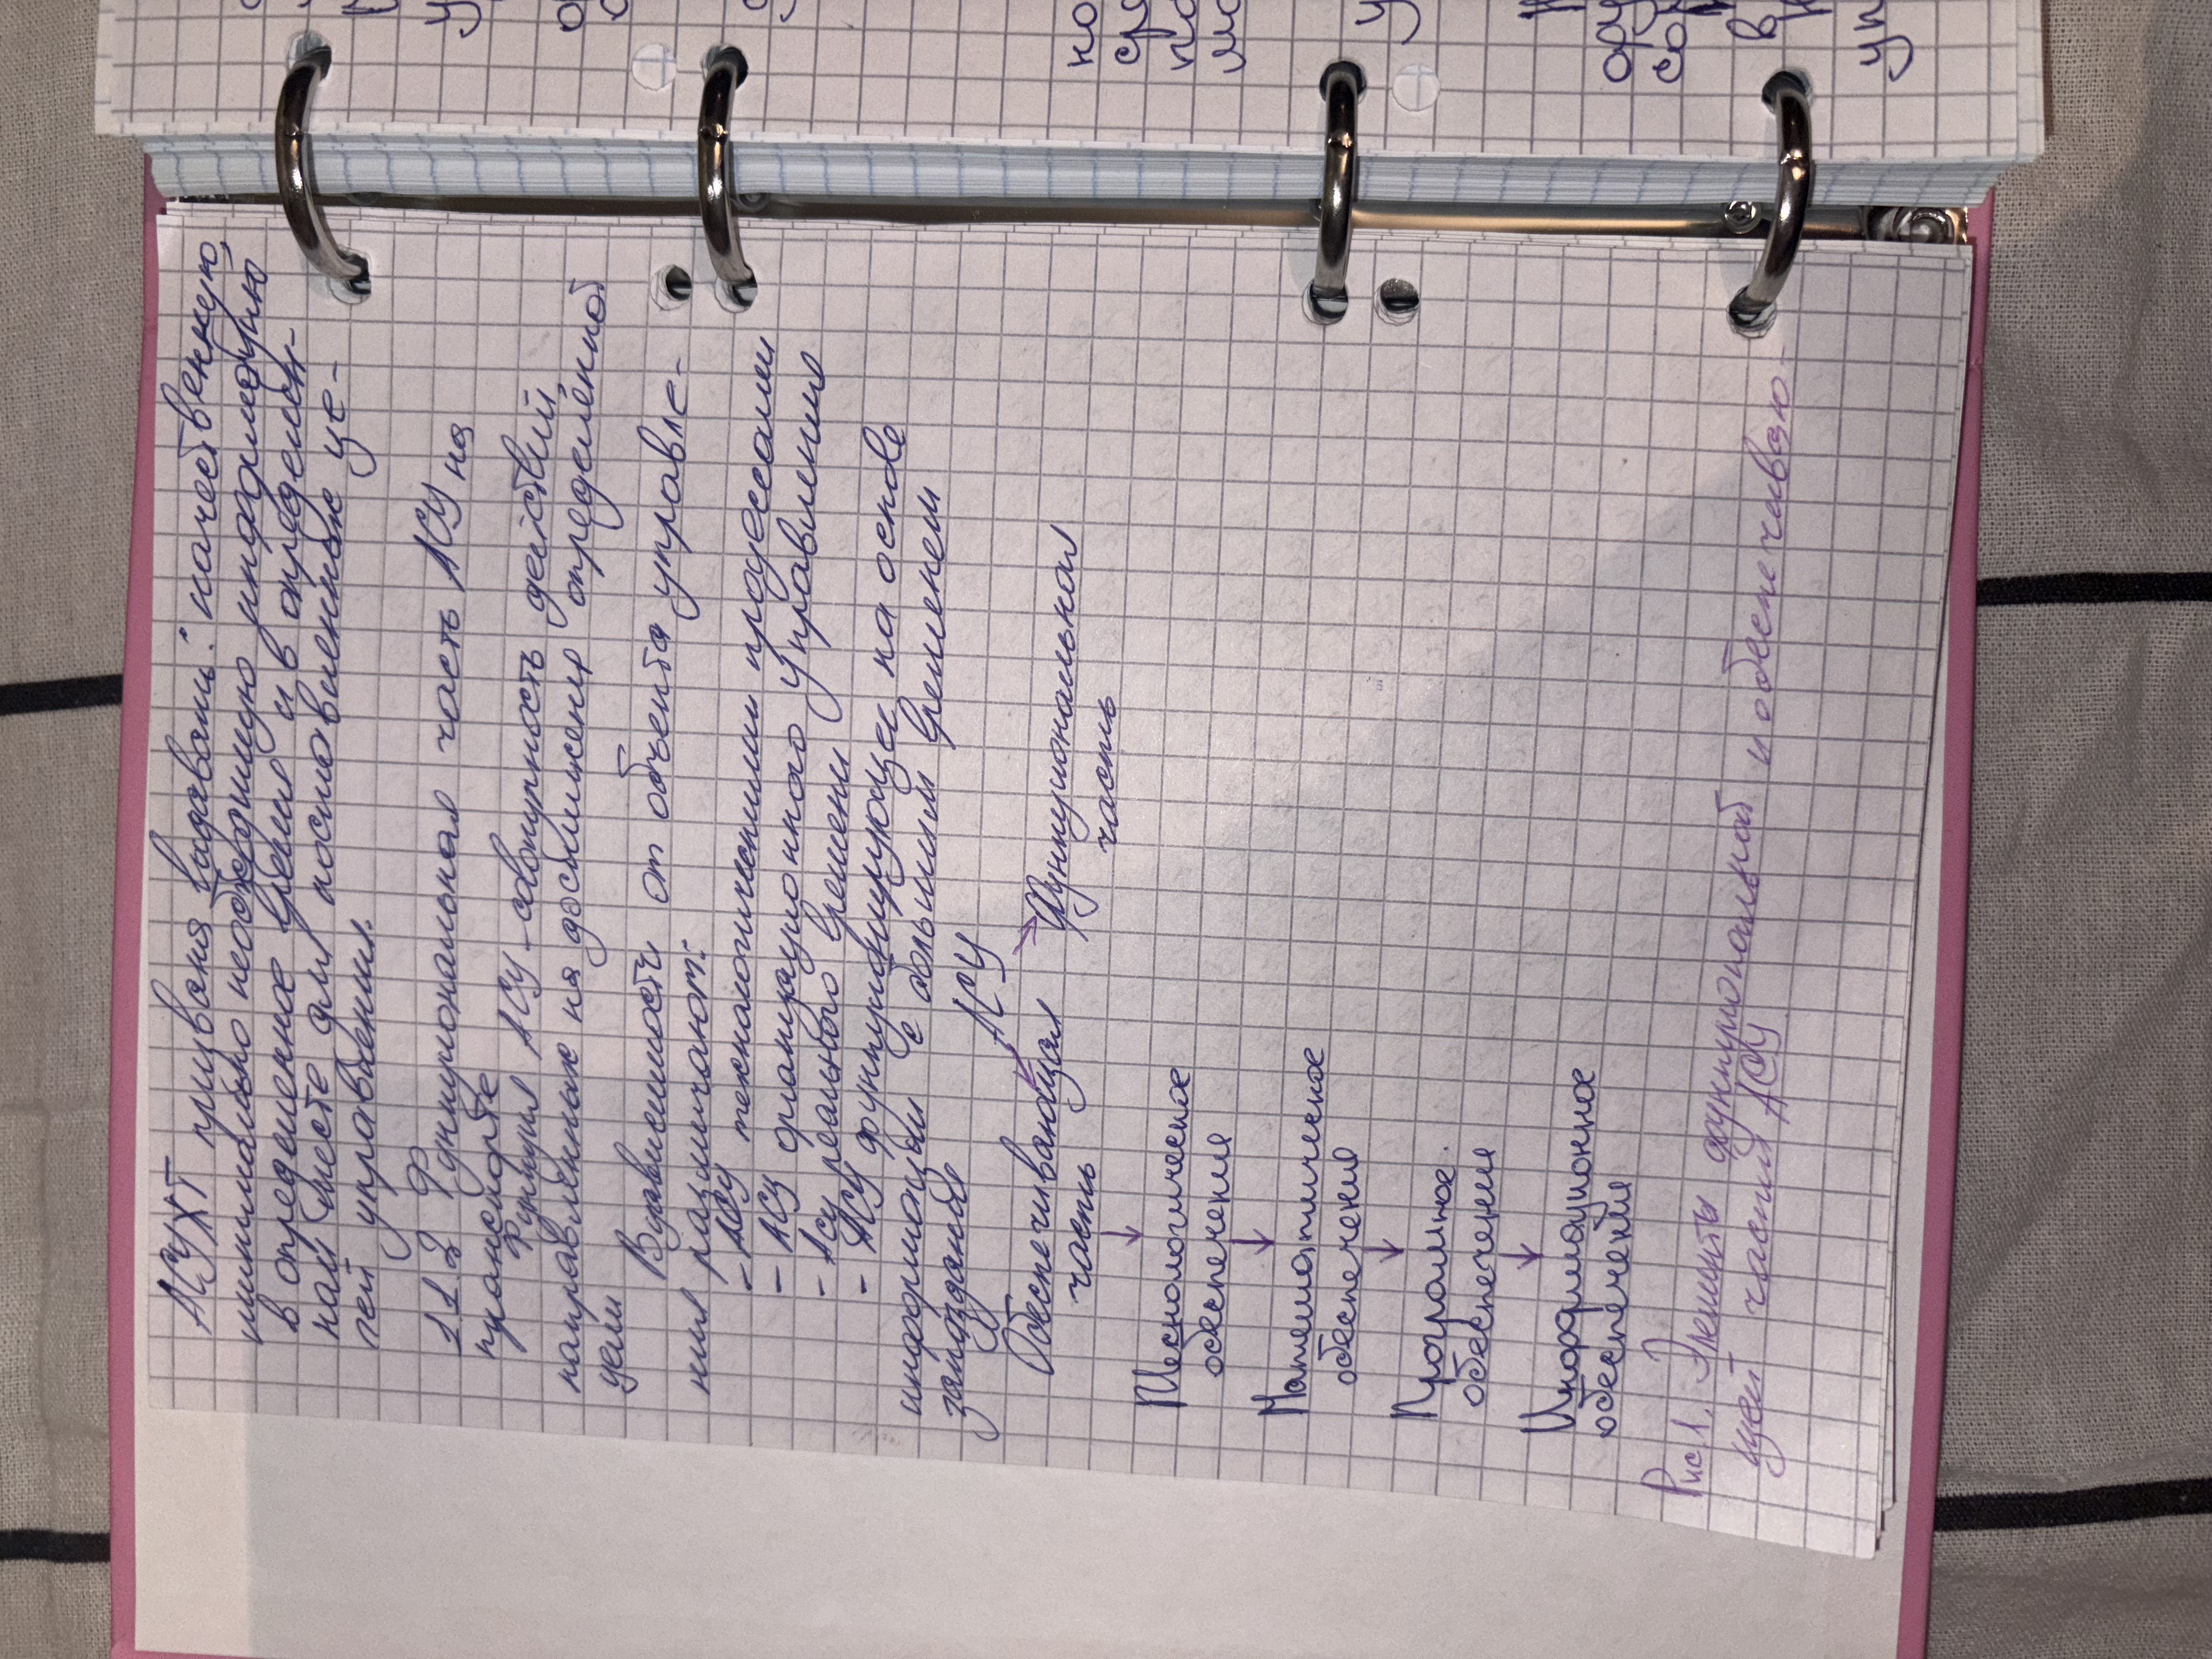 АСУЖТ призвана выдавать: качественную,
минимально необходимую информацию
в определенное время и в определен-
ном месте для поставленных це-
лей управления.
1.1.2 Функциональная часть АСУ на
транспорте
Функция АСУ - совокупность действий
направленных на достижения определённой
цели
В зависимости от объекта управле-
ния различают:
- АСУ технологическими процессами
- АСУ организационного управлению
- АСУ реального времени
- АСУ функционирующее на основе
информации с большим временем
запаздывания
АСУ
Обеспечивающая Функциональная
часть часть
Технологическое
обеспечения
Математическое
обеспечения
Программное
обеспечения
Информационное
обеспечения
Рис 1. Элементы функциональной и обеспечиваю-
щей частий АСУ
но
ср
по
мо
у
ору
со
в
уп